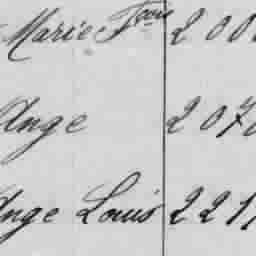 Marie Fçoise 200
Ange 207
Ange Louis 221